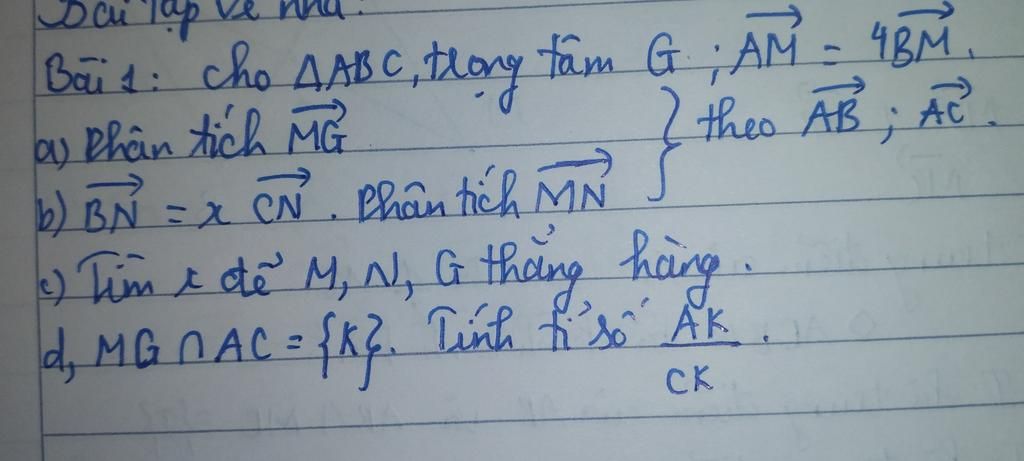 Bài tập về nhà.
Bài 1: Cho ΔABC, trọng tâm G ; AM→ = 4BM→.
a) Phân tích MG→ } theo AB→ ; AC→.
b) BN→ = x CN→ . Phân tích MN→
c) Tìm x để M, N, G thẳng hàng.
d, MG ∩ AC = {K}. Tính tỉ số AK
CK .